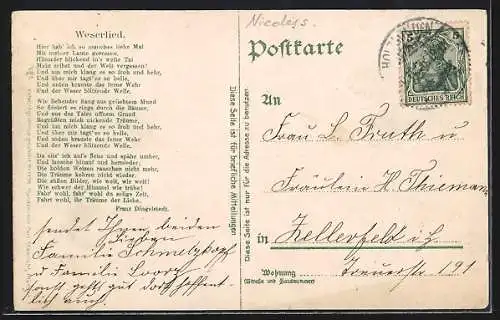 Nicoleys.
Weserlied.
Hier hab' ich so manches liebe Mal
Mit meiner Laute gesessen,
Hinunter blickend in's weite Tal
Mein selbst und der Welt vergessen!
Und um mich klang es so froh und hehr,
Und über mir tagt'es so helle,
Und unten brauste das ferne Wehr
Und der Weser blitzende Welle.
Wie liebender Sang aus geliebtem Mund
So flüstert es rings durch die Bäume,
Und aus des Tales offnem Grund
Begrüßten mich nickende Träume,
Und um mich klang es so froh und hehr,
Und über mir tagt'es so helle,
Und unten brauste das ferne Wehr
Und der Weser blitzende Welle.
Da sitz' ich auf's Neue und spähe umher,
Und lausche hinauf und hernieder;
Die holden Weisen rauschen nicht mehr,
Die Träume kehren nicht wieder.
Die süßen Bilder, wie weit, wie weit!
Wie schwer der Himmel wie trübe!
Fahr' wohl, fahr' wohl du selige Zeit,
Fahrt wohl, ihr Träume der Liebe.
Franz Dingelstedt.
sendet Ihnen beiden
Lieben
Familie Schmelzkopf
u Familie Loors
sonst geht gut dort hoffent-
lich auch.
Diese Seite ist für briefliche Mitteilungen
Diese Seite ist nur für die Adresse zu benutzen
Postkarte
DEUTSCHES REICH
An
Frau L. Fruth u
Fräulein H. Thiemann
in Zellerfeld i/H
Wohnung Treuerstr 191
(Straße und Hausnummer)